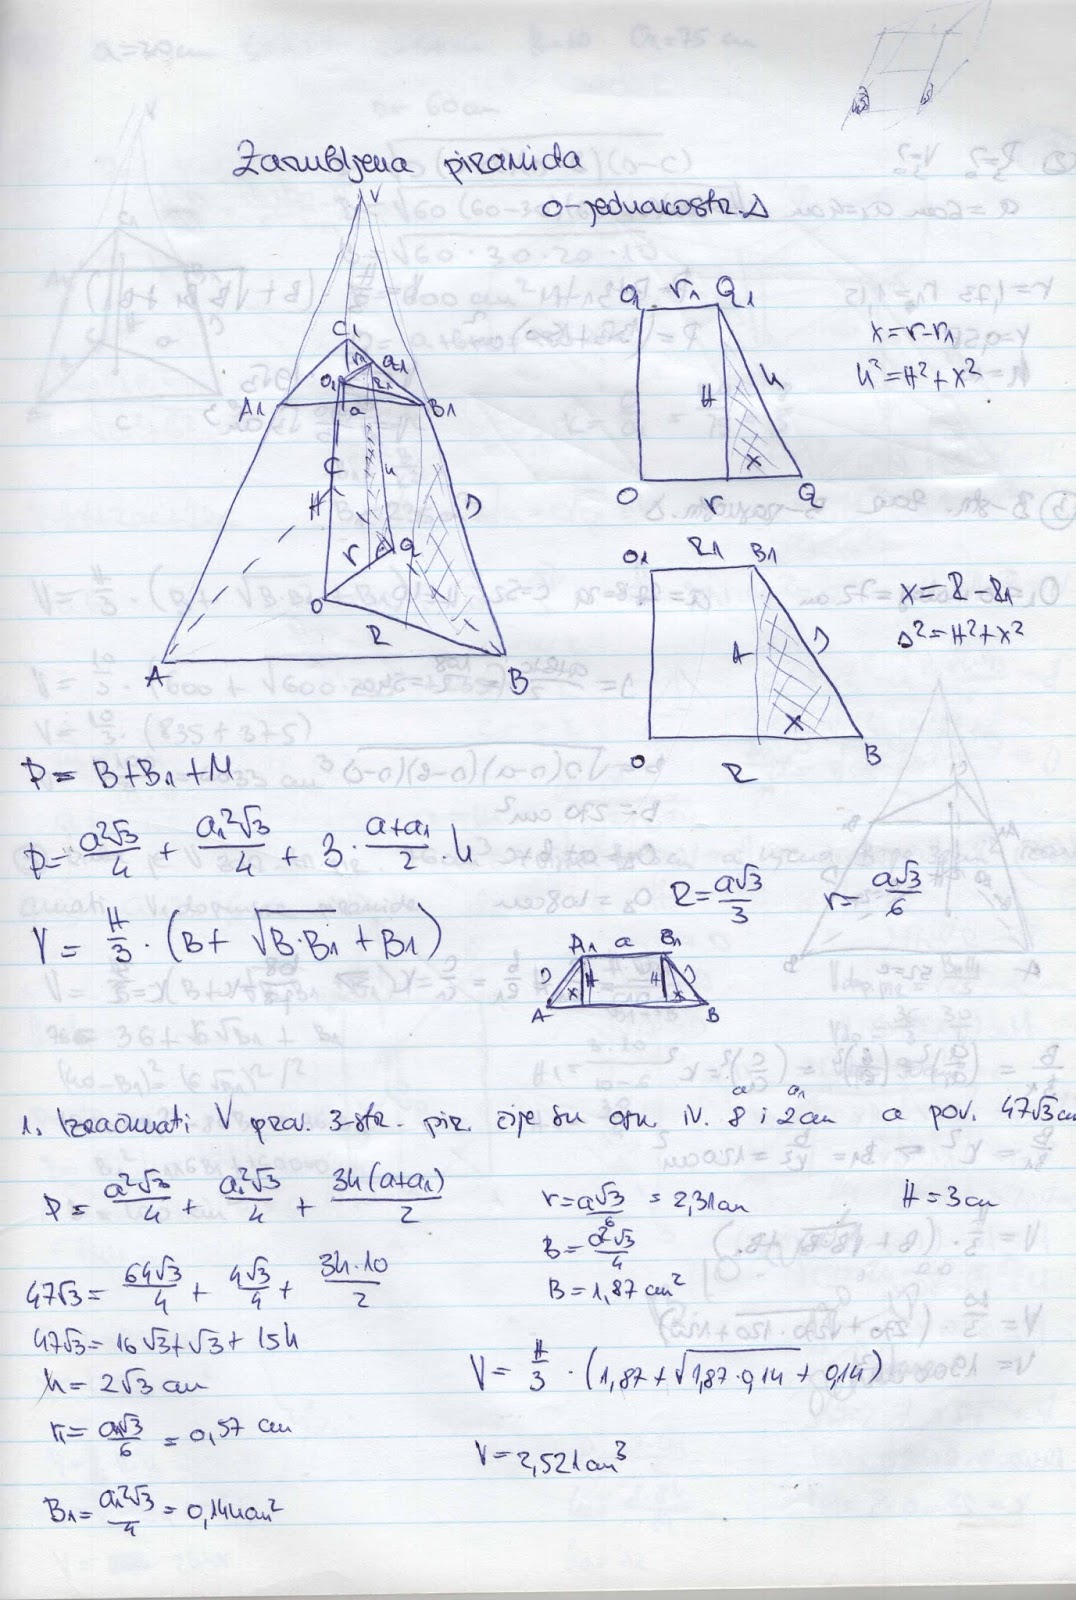 Zarubljena piramida
O-jednakostr. Δ
V
C1
O1 r1 Q1
R1
A1 a B1
C
H h s
r Q
O
R
A B
O1 r1 Q1
H h
x
O r Q
x=r-r1
h²=H²+x²
O1 R1 B1
H s
x
O R B
x=R-R1
s²=H²+x²
P= B+B1+M
P= a²√3/4 + a1²√3/4 + 3· (a+a1)/2 ·h
V= H/3 · (B+ √B·B1 + B1)
R= a√3/3 r= a√3/6
A1 a B1
s H H s
x x
A B
a a1
1. Izračunati V prav. 3-str. pir. čije su osn. iv. 8 i 2cm a pov. 47√3 cm
P= a²√3/4 + a1²√3/4 + 3h(a+a1)/2
47√3= 64√3/4 + 4√3/4 + 3h·10/2
47√3=16√3+√3+15h
h=2√3 cm
r1= a1√3/6 =0,57 cm
B1= a1²√3/4 = 0,144cm²
r= a√3/6 = 2,31cm
B= a²√3/4
B=1,87 cm²
H=3cm
V= H/3 · (1,87+√1,87·0,14 + 0,14)
V=2,521cm³